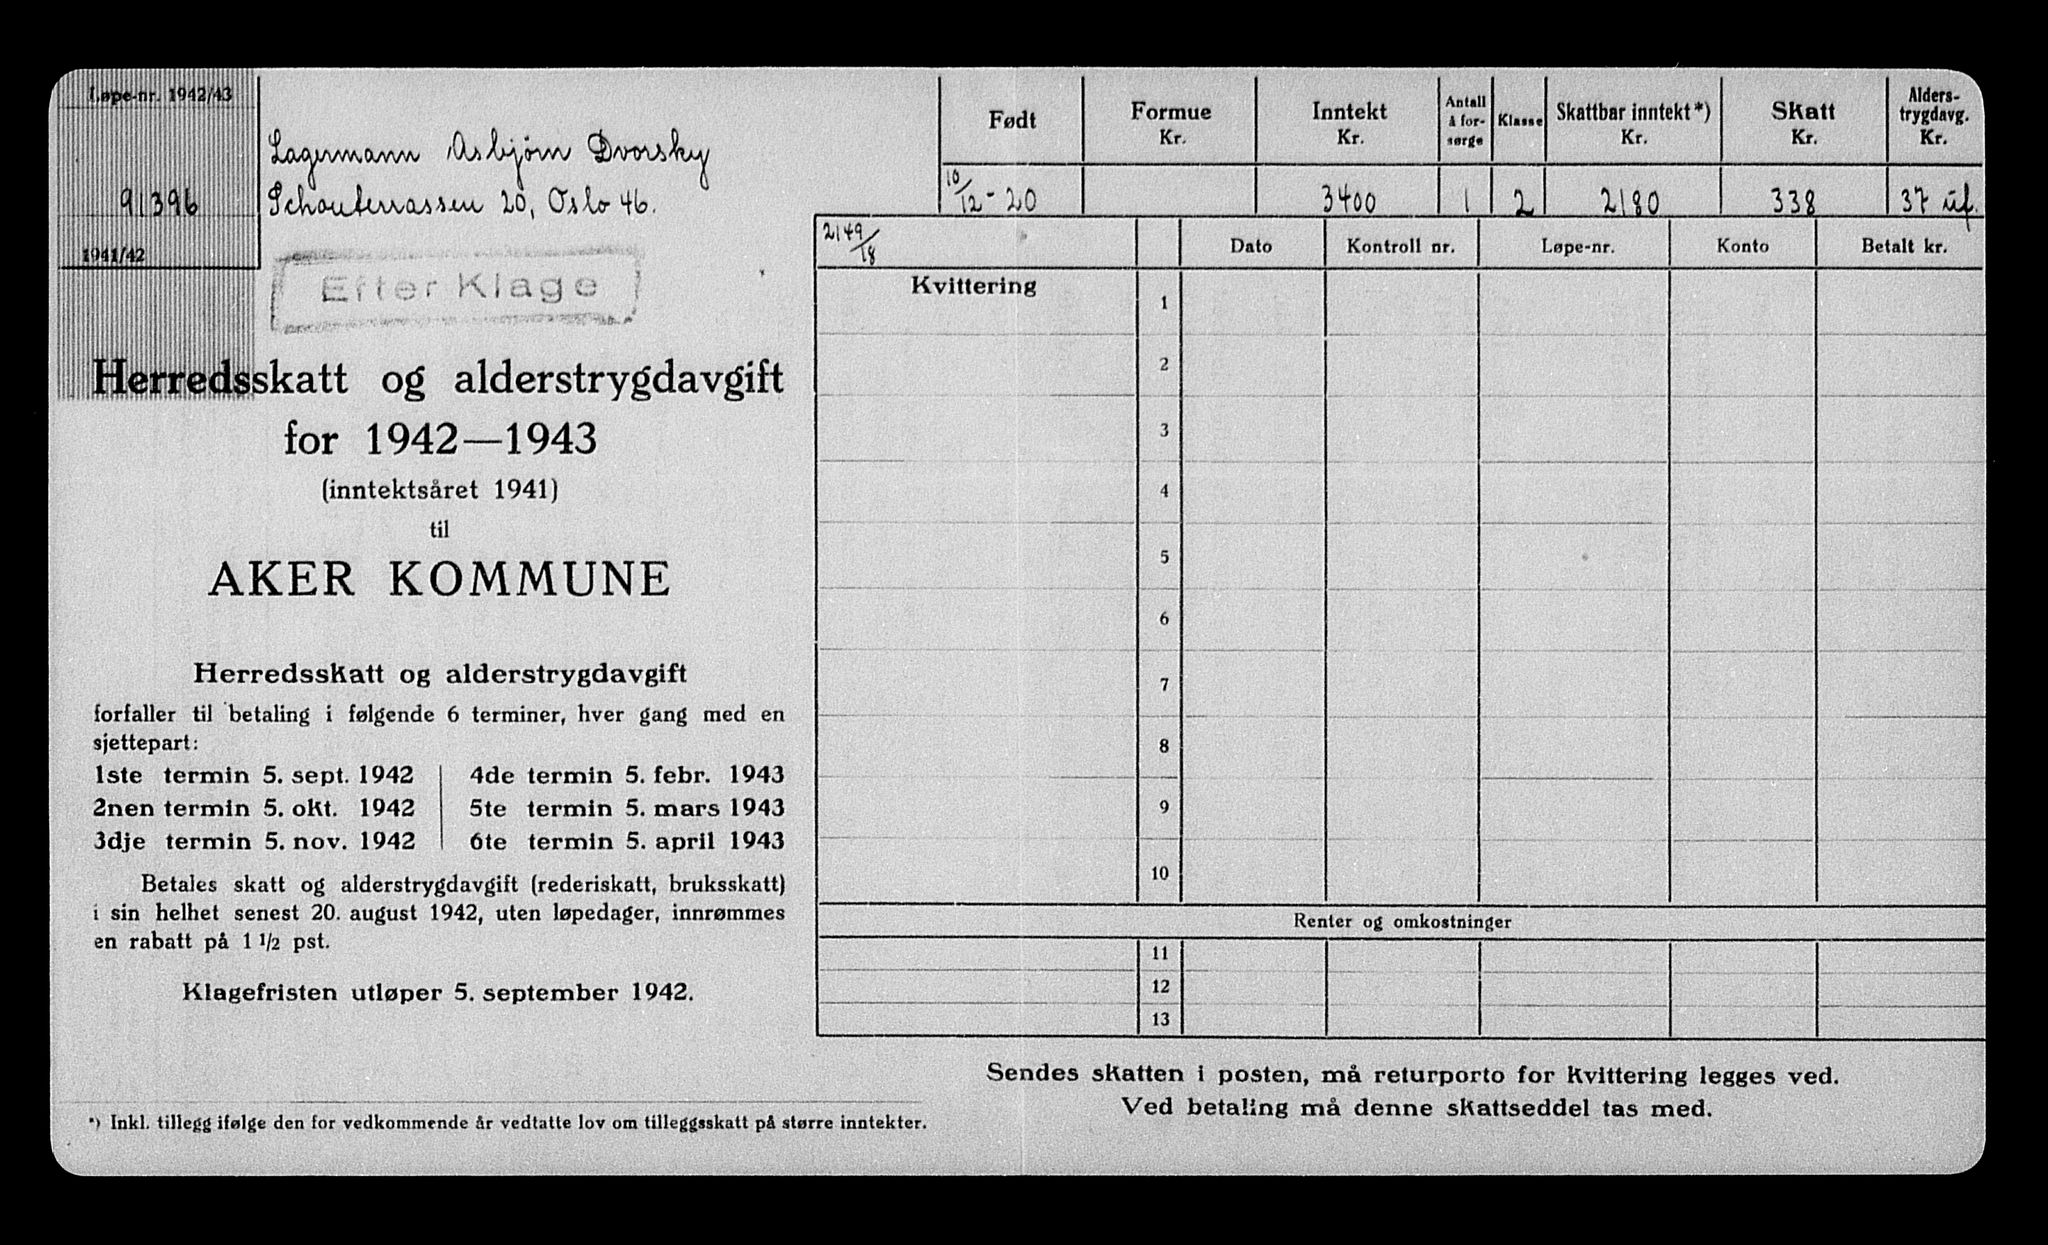 Løpe-nr. 1942/43
91396
1941/42
Lagermann Asbjørn Dvorsky
Schouterrassen 20, Oslo 46.
Efter Klage
Herredsskatt og alderstrygdavgift
for 1942—1943
(inntektsåret 1941)
til
AKER KOMMUNE
Herredsskatt og alderstrygdavgift
forfaller til betaling i følgende 6 terminer, hver gang med en
sjettepart:
1ste termin 5. sept. 1942 | 4de termin 5. febr. 1943
2nen termin 5. okt. 1942 | 5te termin 5. mars 1943
3dje termin 5. nov. 1942 | 6te termin 5. april 1943
Betales skatt og alderstrygdavgift (rederiskatt, bruksskatt)
i sin helhet senest 20. august 1942, uten løpedager, innrømmes
en rabatt på 1 1/2 pst.
Klagefristen utløper 5. september 1942.
*) Inkl. tillegg ifølge den for vedkommende år vedtatte lov om tilleggsskatt på større inntekter.
Født Formue Kr. Inntekt Kr. Antall å forsørge Klasse Skattbar inntekt*) Kr. Skatt Kr. Alderstrygdavg. Kr.
10/12-20 3400 1 2 2180 338 37 uf.
2149/18 Dato Kontroll nr. Løpe-nr. Konto Betalt kr.
Kvittering
1
2
3
4
5
6
7
8
9
10
Renter og omkostninger
11
12
13
Sendes skatten i posten, må returporto for kvittering legges ved.
Ved betaling må denne skattseddel tas med.